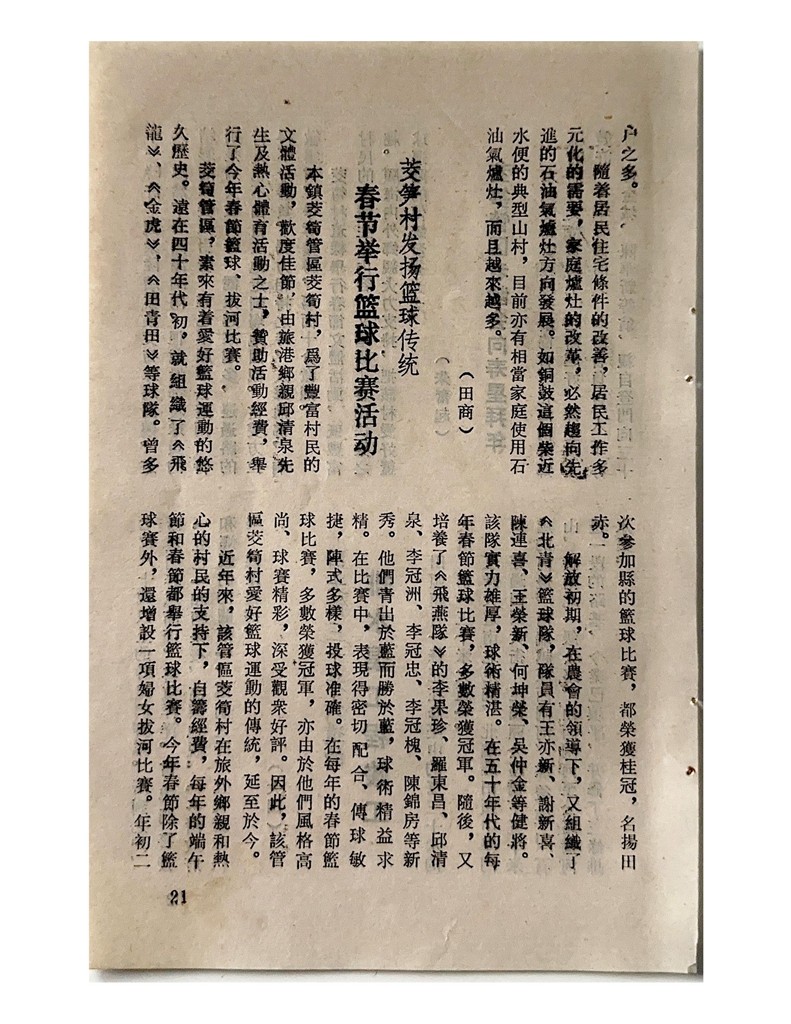 户之多。
隨着居民住宅條件的改善，居民工作多
元化的需要，家庭爐灶的改革，必然趨向先
進的石油氣爐灶方向發展。如銅鼓這個柴近
水便的典型山村，目前亦有相當家庭使用石
油氣爐灶，而且越來越多。
（田商）
茭笋村发扬篮球传统
春节举行篮球比赛活动
本鎮茭筍管區茭筍村，爲了豐富村民的
文體活動，歡度佳節，由旅港鄉親邱清泉先
生及熱心體育活動之士，贊助活動經費，舉
行了今年春節籃球、拔河比賽。
茭筍管區，素來有着愛好籃球運動的悠
久歷史。遠在四十年代初，就組織了《飛
龍》、《金虎》、《田青田》等球隊。曾多
次參加縣的籃球比賽，都榮獲桂冠，名揚田
赤。
解放初期，在農會的領導下，又組織了
《北青》籃球隊，隊員有王亦新、謝新喜、
陳連喜、王榮新、何坤榮、吳仲金等健將。
該隊實力雄厚，球術精湛。在五十年代的每
年春節籃球比賽，多數榮獲冠軍。隨後，又
培養了《飛燕隊》的李果珍、羅東昌、邱清
泉、李冠洲、李冠忠、李冠槐、陳錦房等新
秀。他們青出於藍而勝於藍，球術精益求
精。在比賽中，表現得密切配合、傳球敏
捷，陣式多樣，投球准確。在每年的春節籃
球比賽，多數榮獲冠軍，亦由於他們風格高
尚、球賽精彩，深受觀衆好評。因此，該管
區茭筍村愛好籃球運動的傳統，延至於今。
近年來，該管區茭筍村在旅外鄉親和熱
心的村民的支持下，自籌經費，每年的端午
節和春節都舉行籃球比賽。今年春節除了籃
球賽外，還增設一項婦女拔河比賽。年初二
21